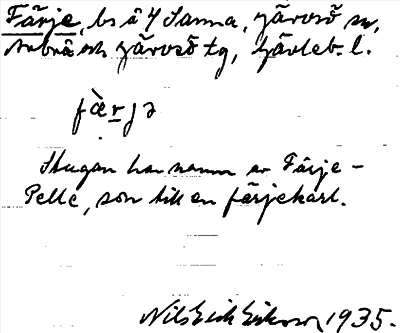 Färje, ls å Y Sanna, Järvsö sn,
Arbrå och Järvsö tg, Gävleb. l.
fæ̀rjə
Stugan har namn av Färje-
Pelle, son till en färjekarl.
Nils Erik Eriksson 1935.